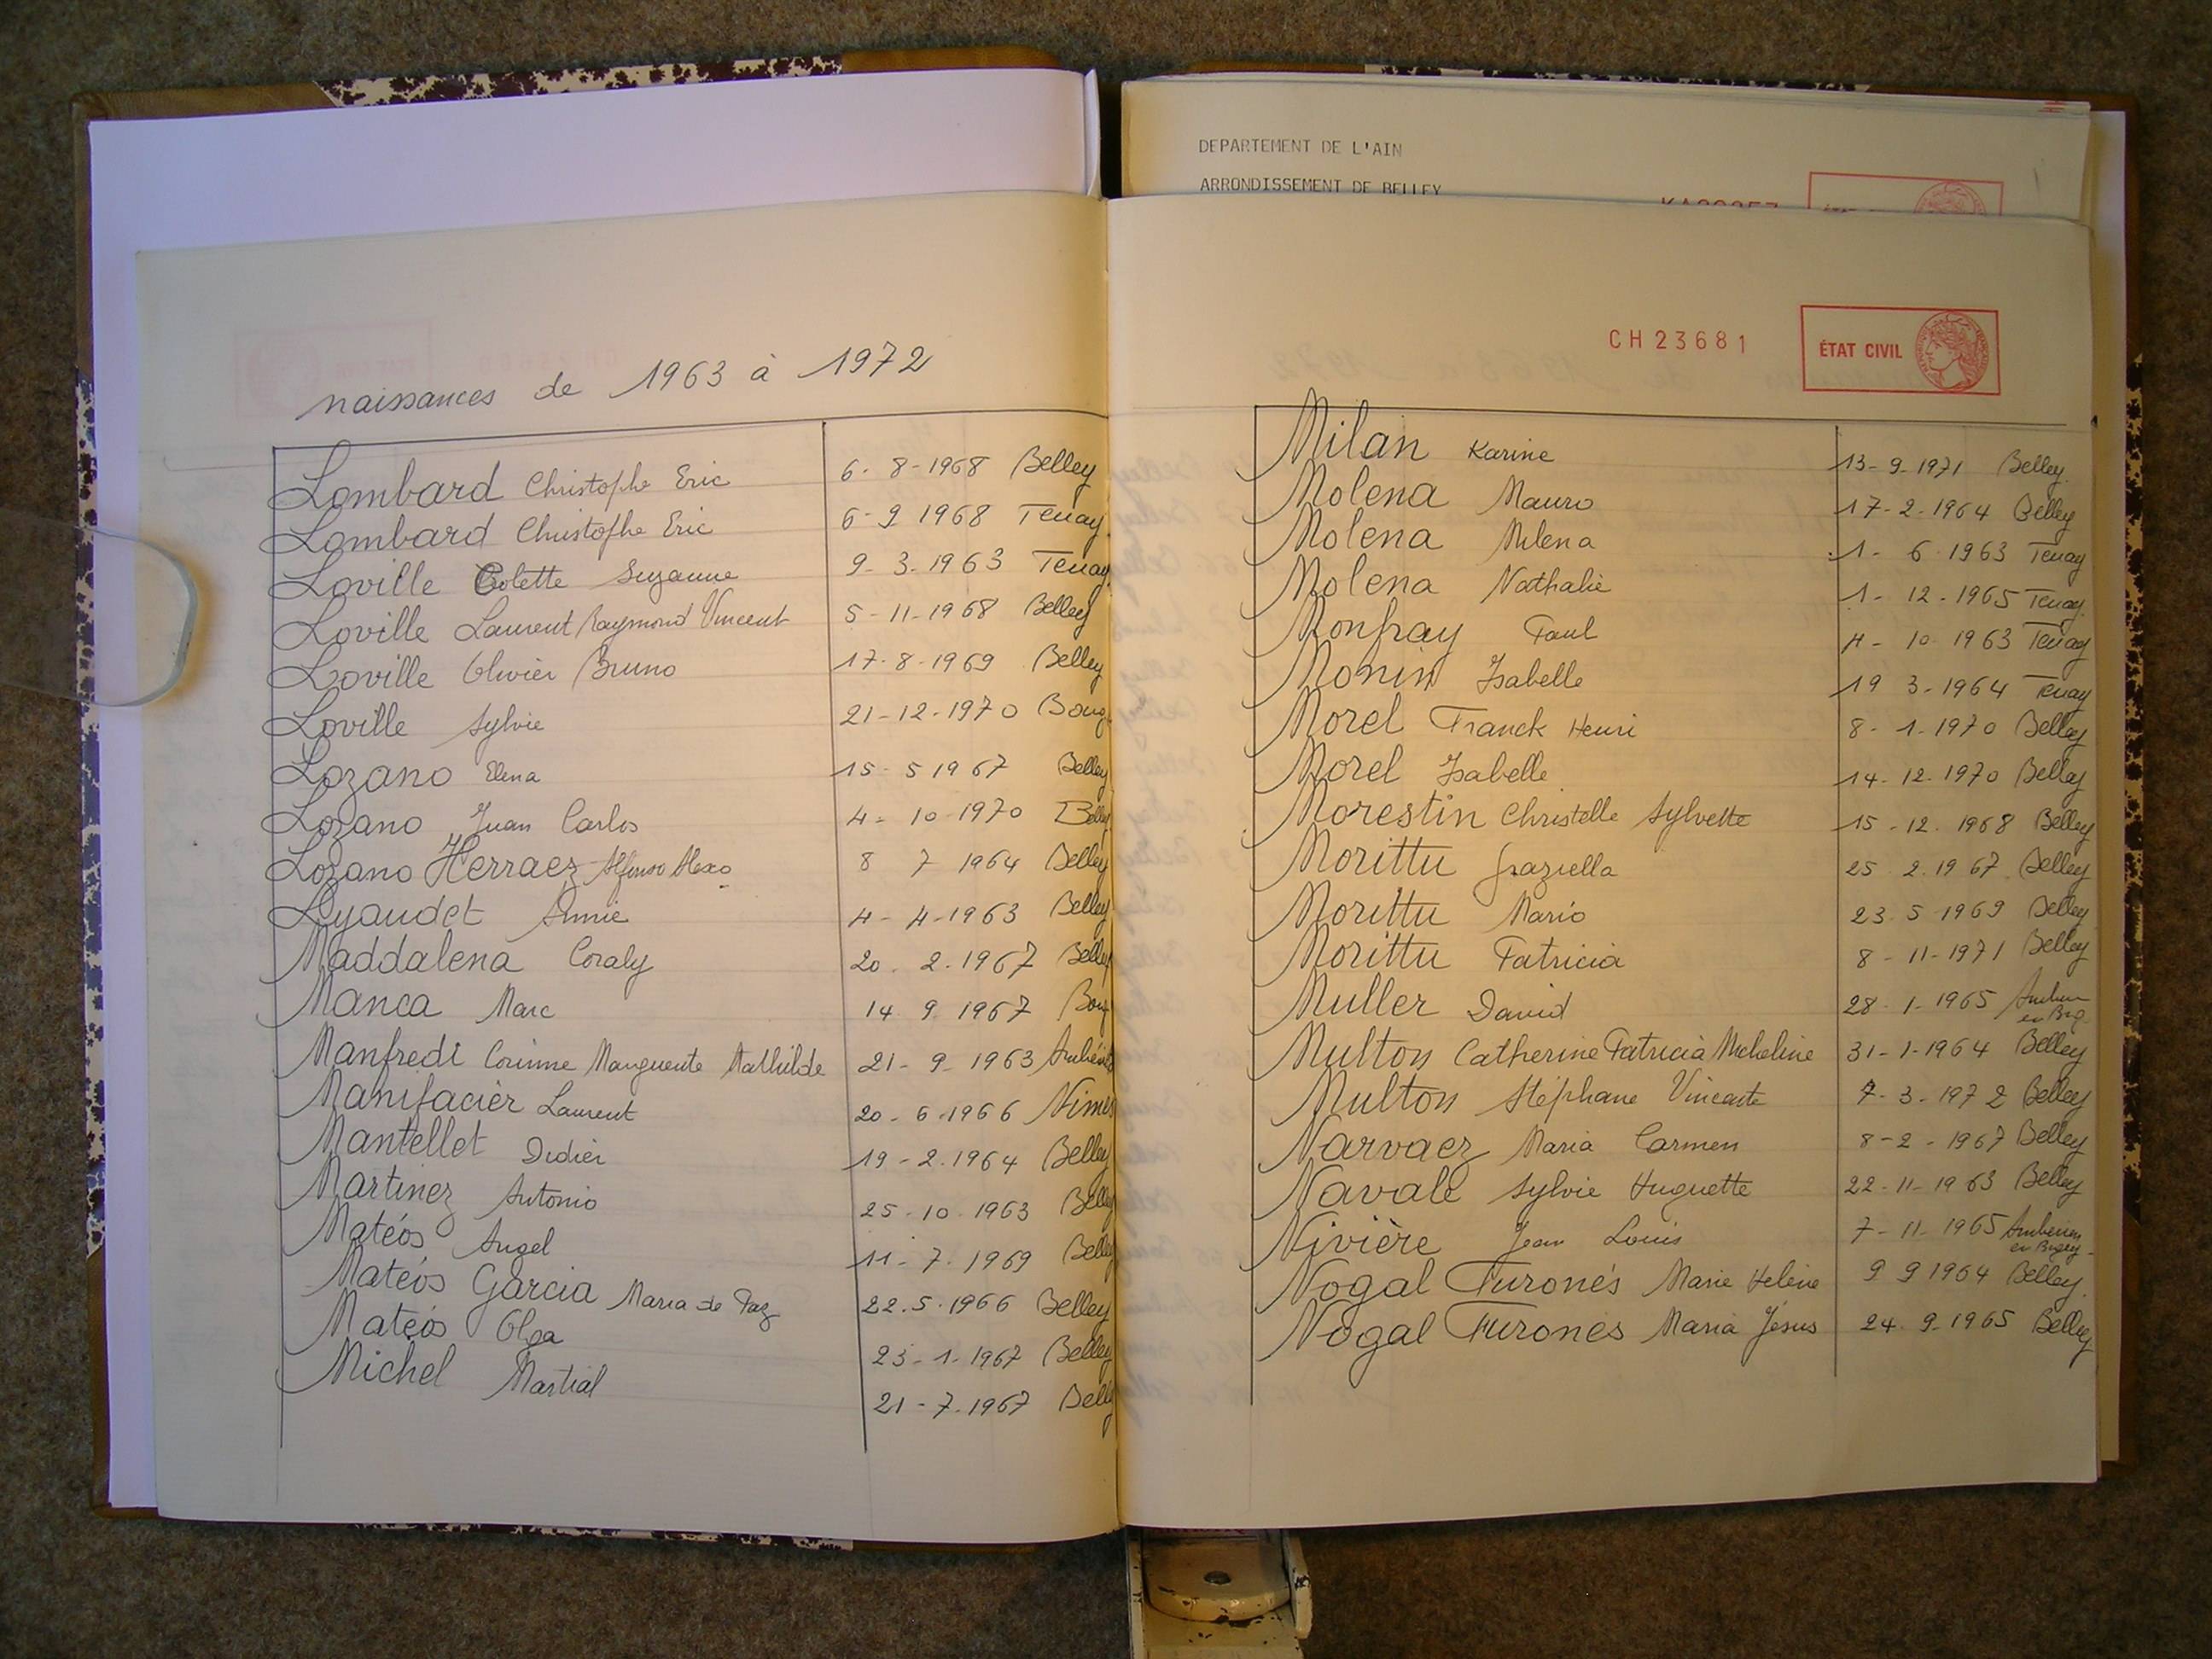 DEPARTEMENT DE L'AIN
ARRONDISSEMENT DE BELLEY
naissances de 1963 à 1972
Lombard Christophe Eric 6-8-1968 Belley
Lombard Christophe Eric 6-9 1968 Tenay
Loville Colette Suzanne 9-3-1963 Tenay
Loville Laurent Raymond Vincent 5-11-1968 Belley
Loville Olivier Bruno 17-8-1969 Belley
Loville Sylvie 21-12-1970 Bourg
Lozano Elena 15-5 1967 Belley
Lozano Juan Carlos 4-10-1970 Belley
Lozano Herraez Alfonso 8 7 1964 Belley
Lyaudet Annie 4-4-1963 Belley
Maddalena Coraly 20.2.1967 Belley
Manca Marc 14 9 1967 Bourg
Manfredi Corinne Marguerite Mathilde 21-9-1963
Manifacier Laurent 20-6-1966 Nimes
Mantellet Didier 19-2.1964 Belley
Martinez Antonio 25-10-1963 Belley
Matéos Angel 11-7-1969 Belley
Matéos Garcia Maria de Paz 22.5.1966 Belley
Matéos Olga 23-1-1967 Belley
Michel Martial 21-7-1967 Belley
CH23681
ÉTAT CIVIL
Milan Karine 13-9-1971 Belley
Molena Mauro 17-2-1964 Belley
Molena Milena 1-6-1963 Tenay
Molena Nathalie 1-12-1965 Tenay
Monfray Paul 4-10-1963 Tenay
Monin Isabelle 19 3-1964 Tenay
Morel Franck Henri 8-1-1970 Belley
Morel Isabelle 14-12-1970 Belley
Morestin Christelle Sylvette 15-12-1968 Belley
Morittu Graziella 25 2.1967 Belley
Morittu Mario 23-5-1969 Belley
Morittu Patricia 8-11-1971 Belley
Muller David 28-1-1965
Multon Catherine Patricia Micheline 31-1-1964 Belley
Multon Stéphane Vincent 7-3-1972 Belley
Narvaez Maria Carmen 8-2-1967 Belley
Navale Sylvie Huguette 22-11-1963 Belley
Nivière Jean Louis 7-11-1965 Ambérieu
en Bugey
Nogal Furonés Marie Helène 9 9 1964 Belley
Nogal Furonés Maria Jésus 24-9-1965 Belley